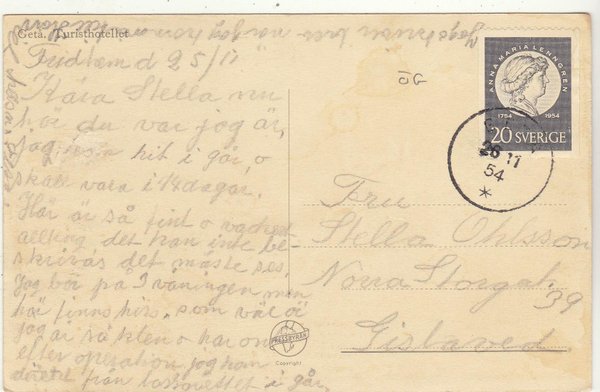 Geta. Turisthotellet
Fridhemd 25/11
Kära Stella nu
hör du var jag är,
jag kit i går, o
skall vara i 14 dagar.
Här är så fint o vackert
allting det kan inte be
skrivas det måste ses.
Jag bor på 3 våningen men
här finns hiss. som väl är
jag är så klen o har ont
efter operation jag kom
direkt från lassarettet i går.
ÖG
ANNA MARIA LENNGREN
1754 1954
20 SVERIGE
26 11
54
Fru
Stella Ohlsson
Norra Storgat.
39
Gislaved
PRESSBYRÅN
Copyright